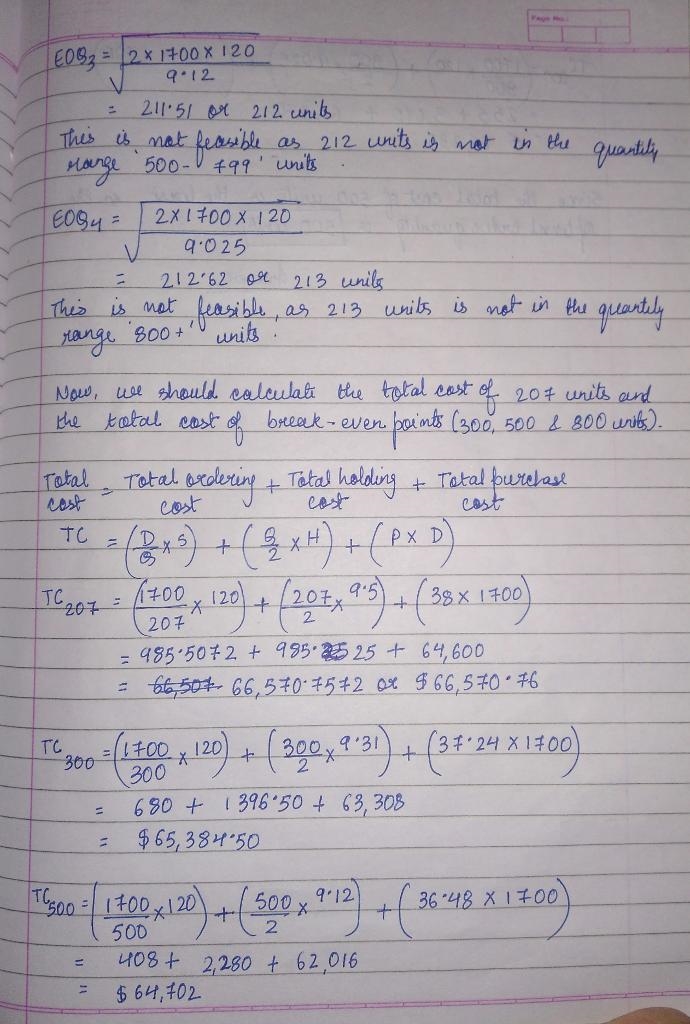 Page No.:
EOQ3 = √2 x 1700 x 120 / 9.12
= 211.51 or 212 units
This is not feasible as 212 units is not in the quantity
range '500-799' units.
EOQ4 = √2 x 1700 x 120 / 9.025
= 212.62 or 213 units
This is not feasible, as 213 units is not in the quantity
range '800+' units.
Now, we should calculate the total cost of 207 units and
the total cost of break-even points (300, 500 & 800 units).
Total cost = Total ordering cost + Total holding cost + Total purchase cost
TC = (D/Q x S) + (Q/2 x H) + (P x D)
TC207 = (1700/207 x 120) + (207/2 x 9.5) + (38 x 1700)
= 985.5072 + 985.25 + 64,600
= 66,507 66,570.7572 or $66,570.76
TC300 = (1700/300 x 120) + (300/2 x 9.31) + (37.24 x 1700)
= 680 + 1396.50 + 63,308
= $65,384.50
TC500 = (1700/500 x 120) + (500/2 x 9.12) + (36.48 x 1700)
= 408 + 2,280 + 62,016
= $64,702